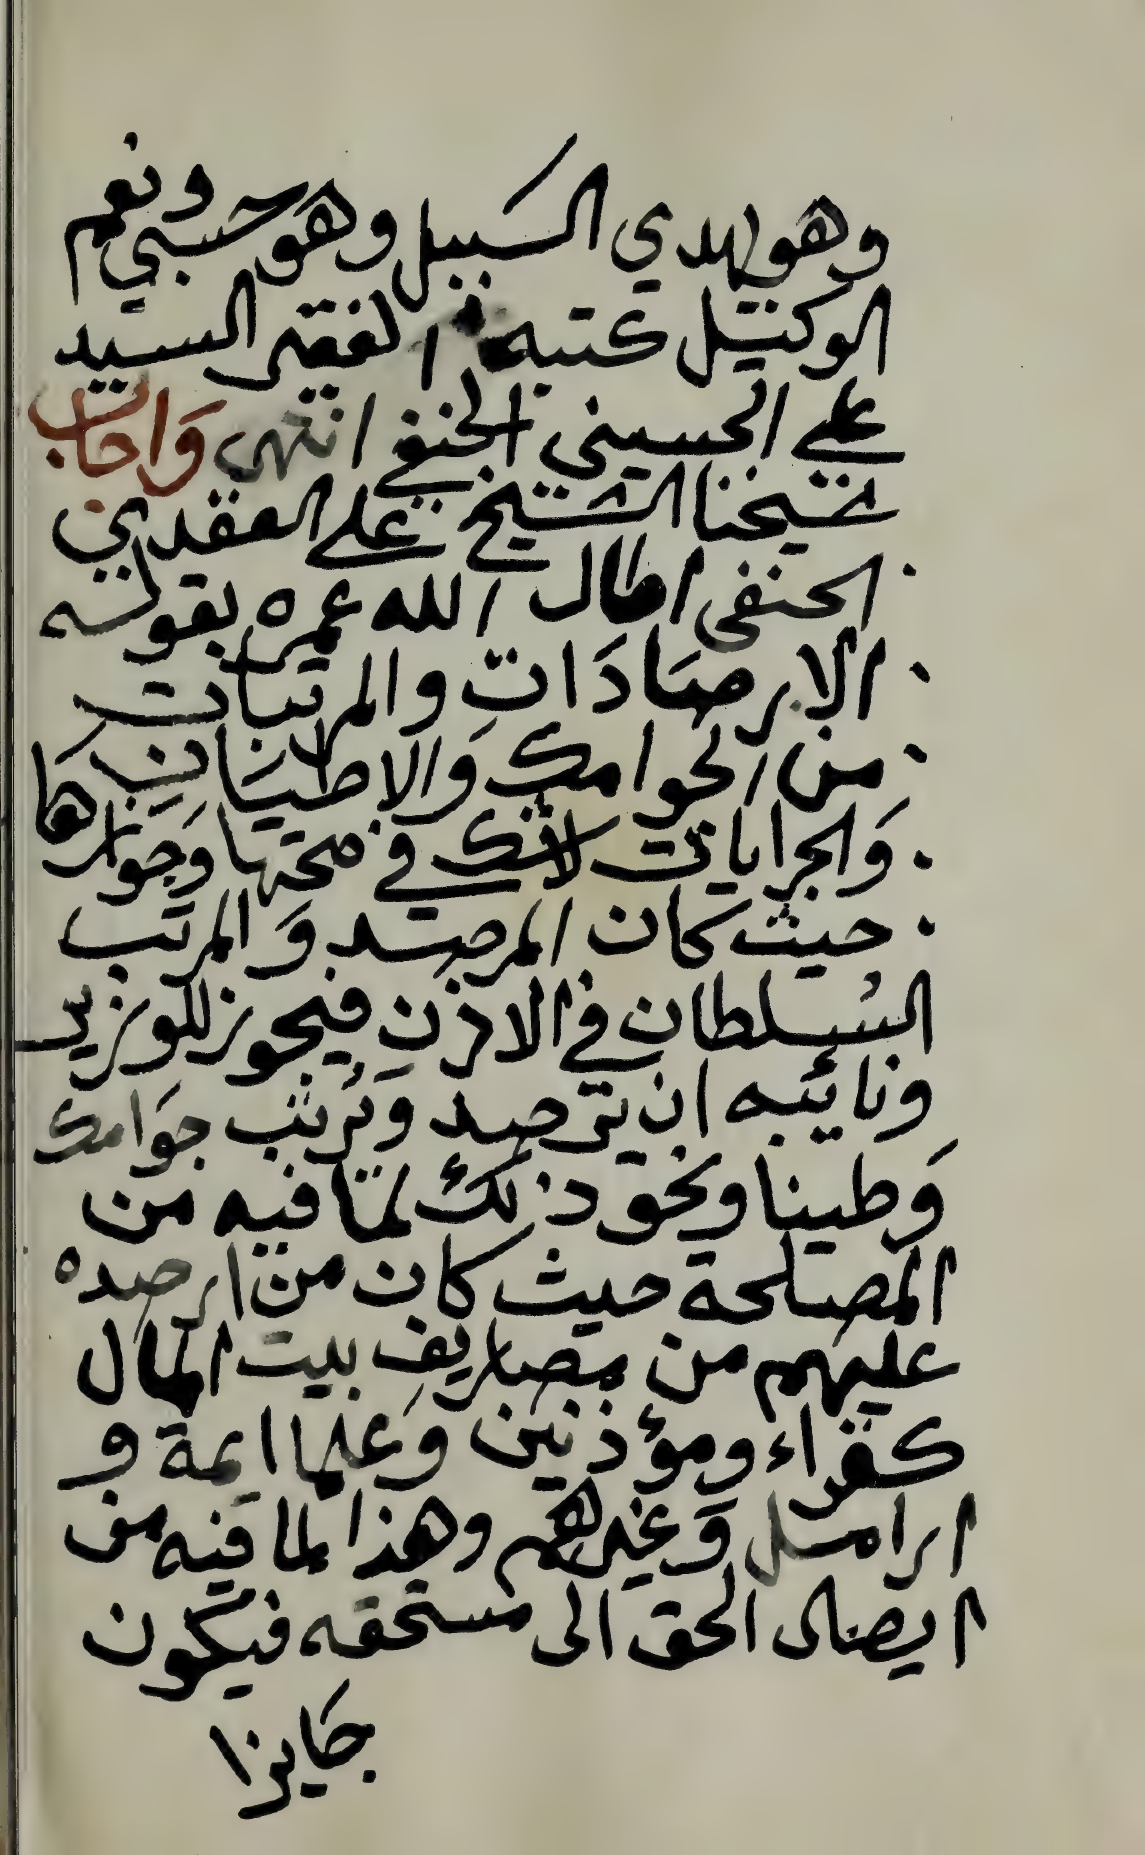 وهو يهدي السبيل وهو حسبي ونعم
الوكيل كتبه الفقير السيد
علي الحسيني الحنفي انتهى وَاجاب
شيخنا الشيخ علي العقدي
الحنفي اطال الله عمره بقوله
الارصَادَات والمرتبات
من الجوامك وَالاطيَان
وَالجرايات لاشك في صحتها وَجوازها
حيث كان المرصد وَالمرتب
السُلطان في الاذن فيجوز للوزير
ونائبه ان يرصد وَيُرتب جوَامك
وَطينا ونحو ذلك لما فيه من
المصلحة حيث كان من ارصده
عليهم من مصاريف بيت المال
كفقراء ومؤذنين وَعلما ايمة و
ارامل وَغيرهم وهذا لما فيه من
ايصال الحق الى مستحقه فيكون
جَايزا